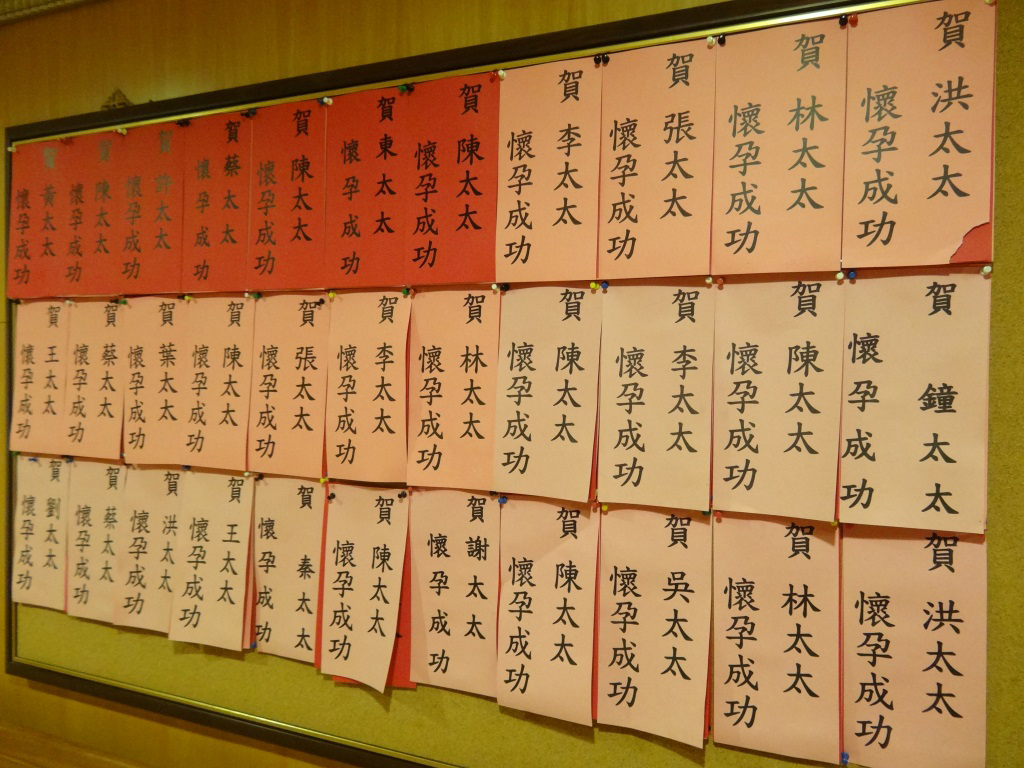 賀 洪太太
懷孕成功
賀 林太太
懷孕成功
賀 張太太
懷孕成功
賀 李太太
懷孕成功
賀 陳太太
懷孕成功
賀 東太太
懷孕成功
賀 陳太太
懷孕成功
賀 蔡太太
懷孕成功
賀 許太太
懷孕成功
賀 陳太太
懷孕成功
賀 黃太太
懷孕成功
賀 鐘太太
懷孕成功
賀 陳太太
懷孕成功
賀 李太太
懷孕成功
賀 陳太太
懷孕成功
賀 林太太
懷孕成功
賀 李太太
懷孕成功
賀 張太太
懷孕成功
賀 陳太太
懷孕成功
賀 葉太太
懷孕成功
賀 蔡太太
懷孕成功
賀 王太太
懷孕成功
賀 洪太太
懷孕成功
賀 林太太
懷孕成功
賀 吳太太
懷孕成功
賀 陳太太
懷孕成功
賀 謝太太
懷孕成功
賀 陳太太
懷孕成功
賀 秦太太
懷孕成功
賀 王太太
懷孕成功
賀 洪太太
懷孕成功
賀 蔡太太
懷孕成功
賀 劉太太
懷孕成功